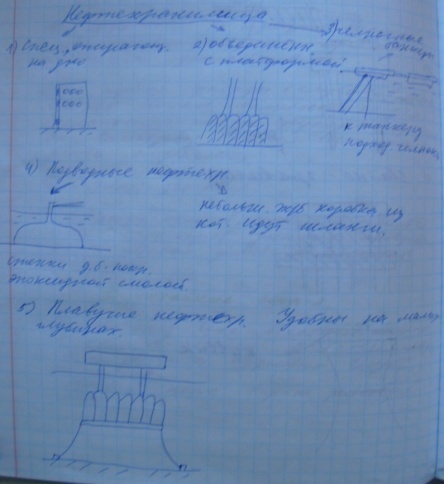 Нефтехранилища
1) Спец. опирающ.
на дно
2) объединены
с платформой
3)
к танкеру
подход
4) Подводные нефтехр.
небольш. жб коробка, из
кот. идут шланги.
стенки д.б. покр.
эпоксидной смолой
5) Плавучие нефтехр. Удобны на малых
глубинах.